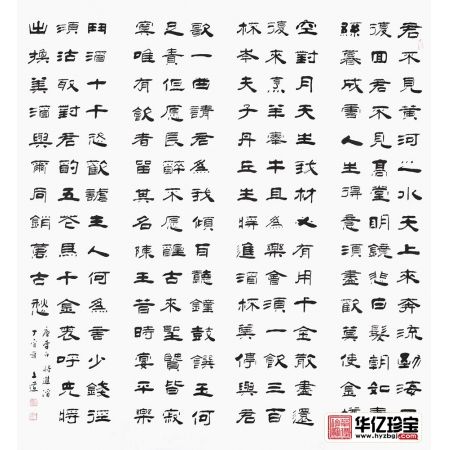 君不見黃河之水天上來奔流到海不
復回君不見高堂明鏡悲白髮朝如青
絲暮成雪人生得意須盡歡莫使金樽
空對月天生我材必有用千金散盡還
復來烹羊宰牛且為樂會須一飲三百
杯岑夫子丹丘生將進酒杯莫停與君
歌一曲請君為我傾耳聽鐘鼓饌玉何
足貴但願長醉不願醒古來聖賢皆寂
寞唯有飲者留其名陳王昔時宴平樂
鬥酒十千恣歡謔主人何為言少錢徑
須沽取對君酌五花馬千金裘呼兒將
出換美酒與爾同銷萬古愁
唐李白將進酒
丁酉年
华亿珍宝
www.hyzbgj.com